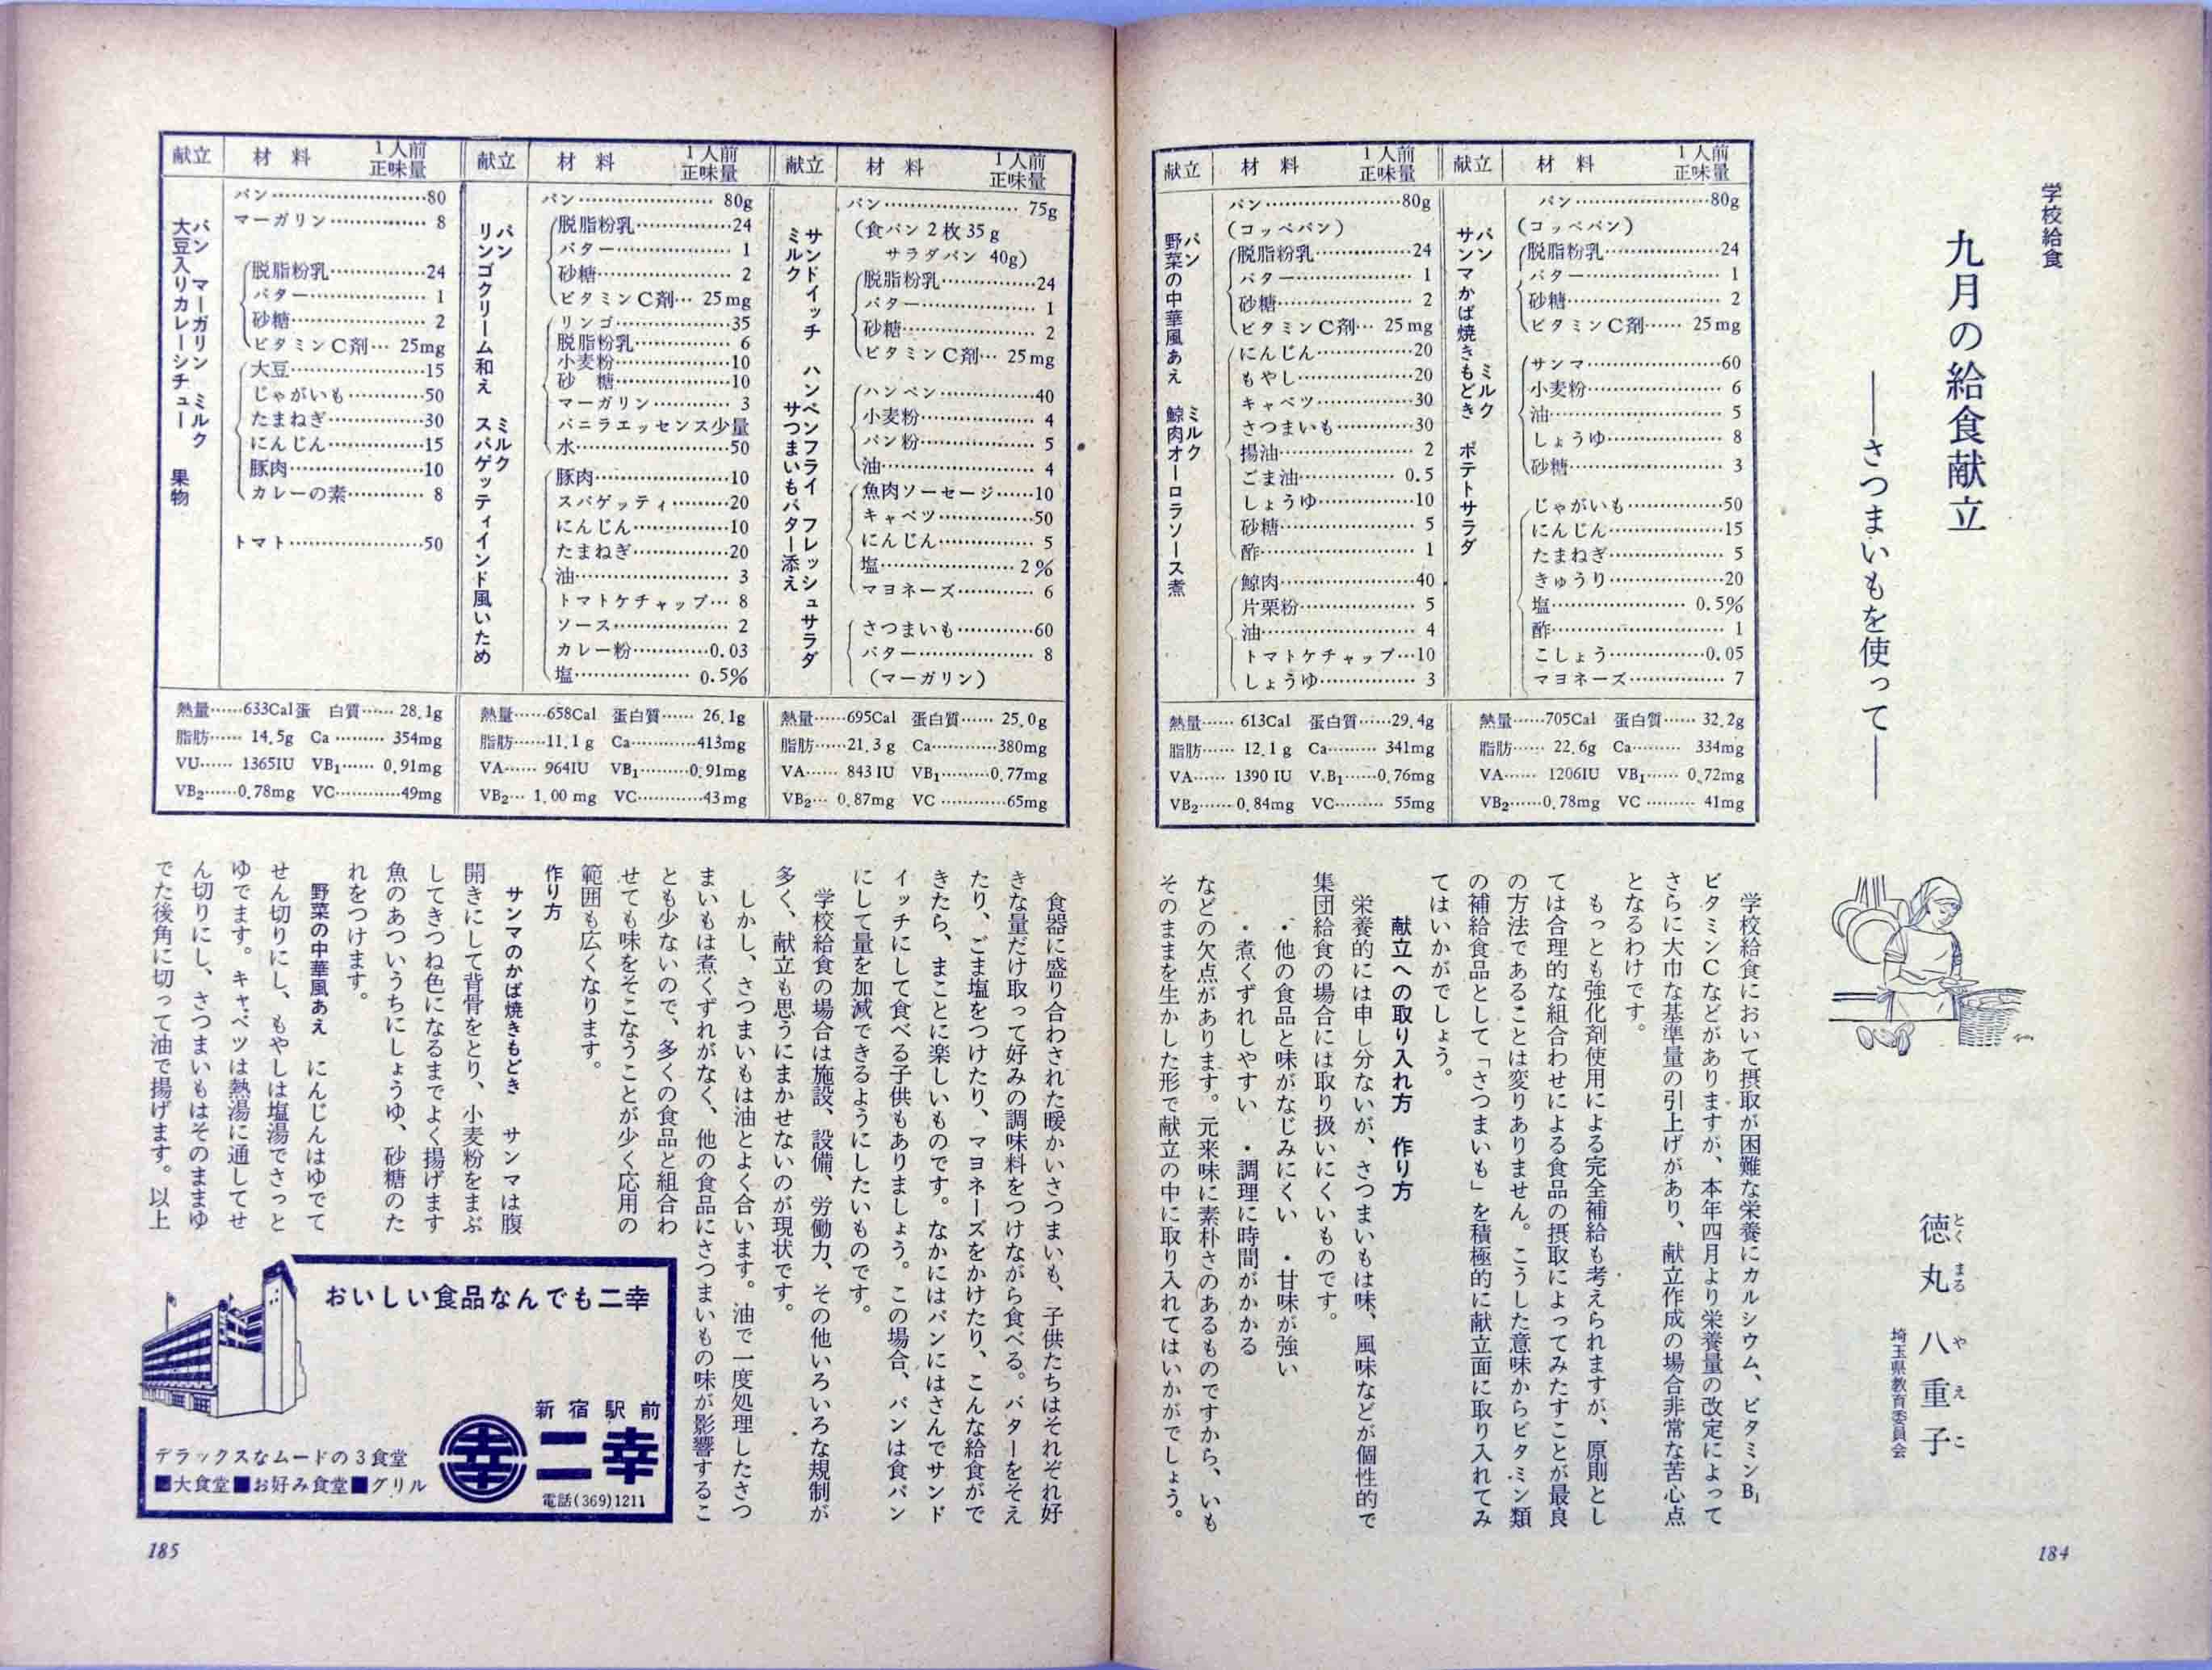 学校給食
九月の給食献立
――さつまいもを使って――
徳丸八重子
とくまるやえこ
埼玉県教育委員会
献立 材料 1人前正味量
パン ミルク
サンマかば焼きもどき ポテトサラダ
パン……80g
(コッペパン)
脱脂粉乳……24
バター……1
砂糖……2
ビタミンC剤……25mg
サンマ……60
小麦粉……6
油……5
しょうゆ……8
砂糖……3
じゃがいも……50
にんじん……15
たまねぎ……5
きゅうり……20
塩……0.5%
酢……1
こしょう……0.05
マヨネーズ……7
熱量……705Cal 蛋白質……32.2g
脂肪……22.6g Ca……334mg
VA……1206IU VB₁……0.72mg
VB₂……0.78mg VC……41mg
献立 材料 1人前正味量
パン ミルク
野菜の中華風あえ 鯨肉オーロラソース煮
パン……80g
(コッペパン)
脱脂粉乳……24
バター……1
砂糖……2
ビタミンC剤…25mg
にんじん……20
もやし……20
キャベツ……30
さつまいも……30
揚油……2
ごま油……0.5
しょうゆ……10
砂糖……5
酢……1
鯨肉……40
片栗粉……5
油……4
トマトケチャップ…10
しょうゆ……3
熱量……613Cal 蛋白質……29.4g
脂肪……12.1g Ca……341mg
VA……1390IU V.B₁……0.76mg
VB₂……0.84mg VC……55mg
学校給食において摂取が困難な栄養にカルシウム、ビタミンB₁
ビタミンCなどがありますが、本年四月より栄養量の改定によって
さらに大巾な基準量の引上げがあり、献立作成の場合非常な苦心点
となるわけです。
もっとも強化剤使用による完全補給も考えられますが、原則とし
ては合理的な組合わせによる食品の摂取によってみたすことが最良
の方法であることは変りありません。こうした意味からビタミン類
の補給食品として「さつまいも」を積極的に献立面に取り入れてみ
てはいかがでしょう。
献立への取り入れ方 作り方
栄養的には申し分ないが、さつまいもは味、風味などが個性的で
集団給食の場合には取り扱いにくいものです。
・他の食品と味がなじみにくい ・甘味が強い
・煮くずれしやすい ・調理に時間がかかる
などの欠点があります。元来味に素朴さのあるものですから、いも
そのままを生かした形で献立の中に取り入れてはいかがでしょう。
184
献立 材料 1人前正味量
サンドイッチ ハンペンフライ フレッシュサラダ
ミルク さつまいもバター添え
パン……75g
(食パン2枚35g
サラダパン 40g)
脱脂粉乳……24
バター……1
砂糖……2
ビタミンC剤…25mg
ハンペン……40
小麦粉……4
パン粉……5
油……4
魚肉ソーセージ……10
キャベツ……50
にんじん……5
塩……2%
マヨネーズ……6
さつまいも……60
バター……8
(マーガリン)
熱量……695Cal 蛋白質……25.0g
脂肪……21.3g Ca……380mg
VA……843IU VB₁……0.77mg
VB₂…0.87mg VC……65mg
献立 材料 1人前正味量
パン ミルク
リンゴクリーム和え スパゲッティインド風いため
パン……80g
脱脂粉乳……24
バター……1
砂糖……2
ビタミンC剤…25mg
リンゴ……35
脱脂粉乳……6
小麦粉……10
砂糖……10
マーガリン……3
バニラエッセンス少量
水……50
豚肉……10
スパゲッティ……20
にんじん……10
たまねぎ……20
油……3
トマトケチャップ…8
ソース……2
カレー粉……0.03
塩……0.5%
熱量……658Cal 蛋白質……26.1g
脂肪……11.1g Ca……413mg
VA……964IU VB₁……0.91mg
VB₂…1.00mg VC……43mg
献立 材料 1人前正味量
パン マーガリン ミルク
大豆入りカレーシチュー 果物
パン……80
マーガリン……8
脱脂粉乳……24
バター……1
砂糖……2
ビタミンC剤…25mg
大豆……15
じゃがいも……50
たまねぎ……30
にんじん……15
豚肉……10
カレーの素……8
トマト……50
熱量……633Cal蛋 白質……28.1g
脂肪……14.5g Ca……354mg
VU……1365IU VB₁……0.91mg
VB₂……0.78mg VC……49mg
食器に盛り合わされた暖かいさつまいも、子供たちはそれぞれ好
きな量だけ取って好みの調味料をつけながら食べる。バターをそえ
たり、ごま塩をつけたり、マヨネーズをかけたり、こんな給食がで
きたら、まことに楽しいものです。なかにはパンにはさんでサンド
イッチにして食べる子供もありましょう。この場合、パンは食パン
にして量を加減できるようにしたいものです。
学校給食の場合は施設、設備、労働力、その他いろいろな規制が
多く、献立も思うにまかせないのが現状です。
しかし、さつまいもは油とよく合います。油で一度処理したさつ
まいもは煮くずれがなく、他の食品にさつまいもの味が影響するこ
とも少ないので、多くの食品と組合わ
せても味をそこなうことが少く応用の
範囲も広くなります。
作り方
サンマのかば焼きもどき サンマは腹
開きにして背骨をとり、小麦粉をまぶ
してきつね色になるまでよく揚げます
魚のあついうちにしょうゆ、砂糖のた
れをつけます。
野菜の中華風あえ にんじんはゆでて
せん切りにし、もやしは塩湯でさっと
ゆでます。キャベツは熱湯に通してせ
ん切りにし、さつまいもはそのままゆ
でた後角に切って油で揚げます。以上
おいしい食品なんでも二幸
新宿駅前
幸
二幸
電話(369)1211
デラックスなムードの3食堂
■大食堂■お好み食堂■グリル
185